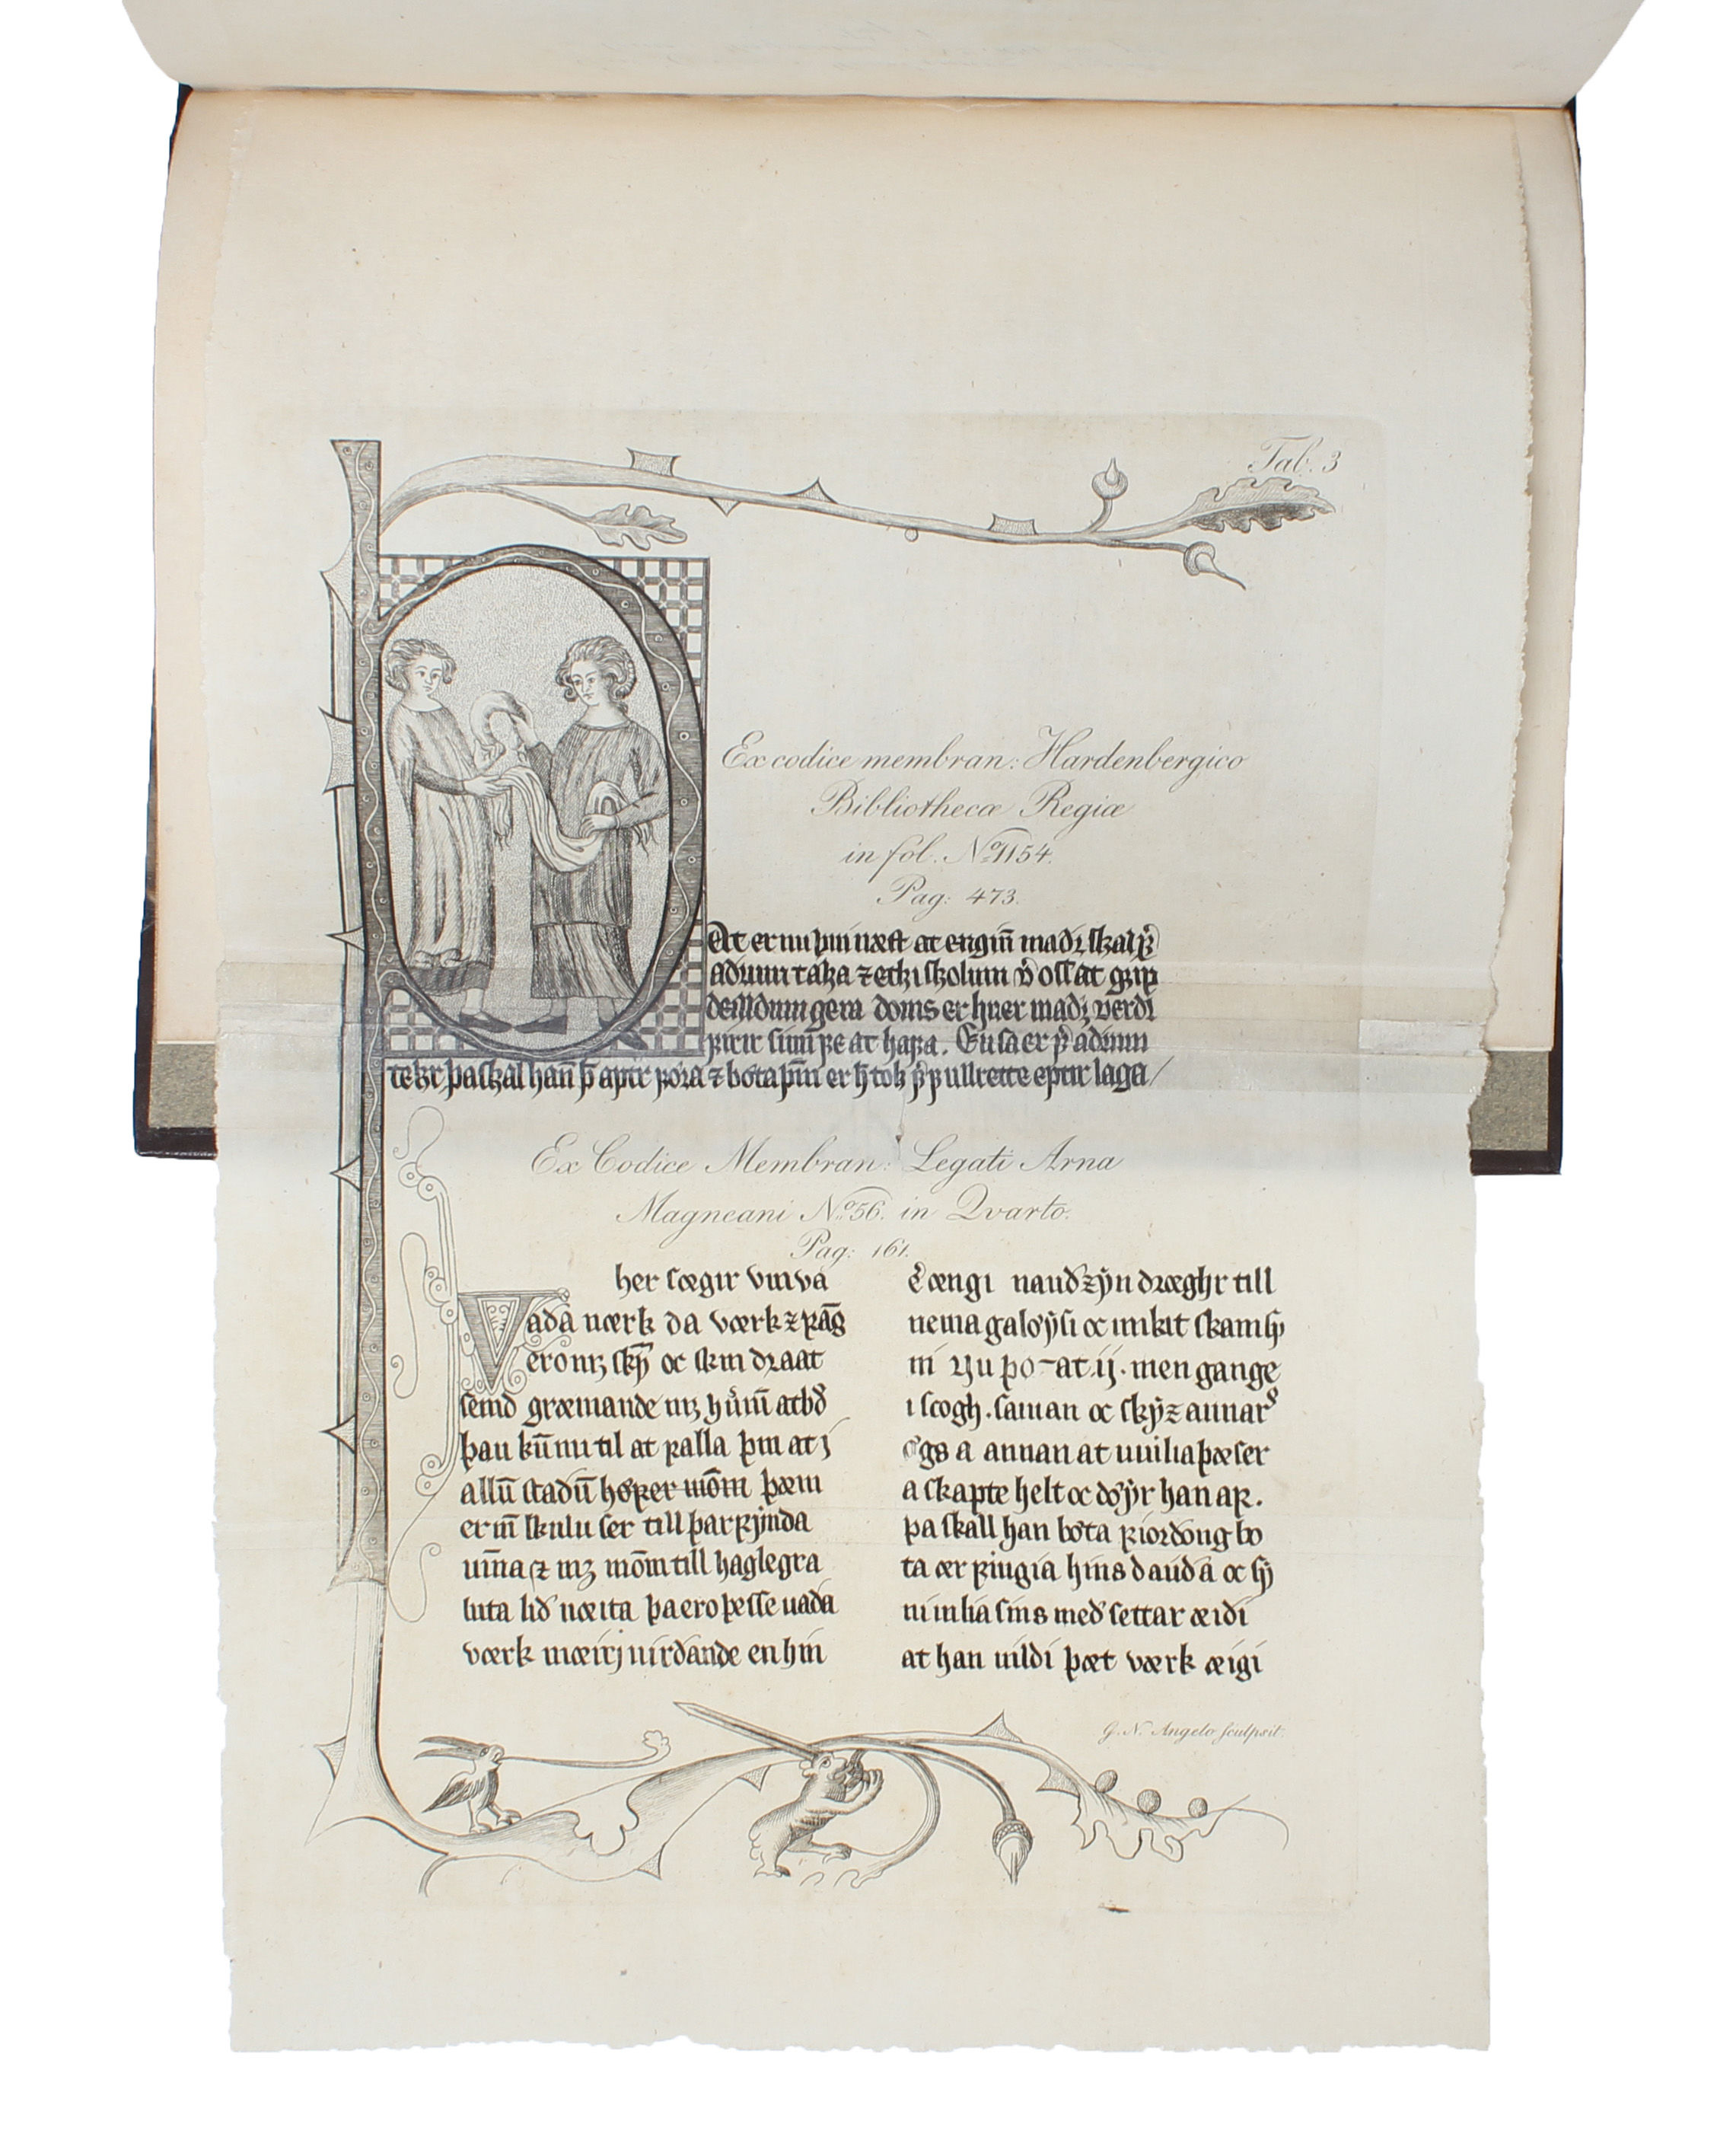 Tab. 3
Ex codice membran: Hardenbergico
Bibliothecæ Regiæ
in fol. No. 1154.
Pag: 473.
at er nu þui næst at engin̄ madꝛ skal
adum taka ⁊ ecki skolum oss at
deilldum gera doms er huer madꝛ verdr
at hafa. En sa er adum
tekr þa skal han̄ aptr fǿra ⁊ bǿta er tok fullrette eptir laga /
Ex Codice Membran: Legati Arna
Magneani No. 56. in Qvarto.
Pag: 161.
her sægir vm va
Vada værk da værk ⁊
ero oc skin draat
semd græmande
þan til at falla þm at j
allū stadū þæm
er skulu ser till þarfjnda
uin̄a ⁊ mꝫ mōm till haglegra
luta lid uæita þa ero þesse uada
værk mæirj uirdande en hin
æengi naud dræghr till
nema oc mikit skam
men gange
i scogh. saman oc annar
a annan at uuilia þæser
a skapte helt oc døyr han af.
þa skall han bǿta fiordong bo
ta ær fingia hins dauda oc
ni inlia sins med settar æidi
at han uildi þæt værk æigi
G. N. Angelo sculpsit.